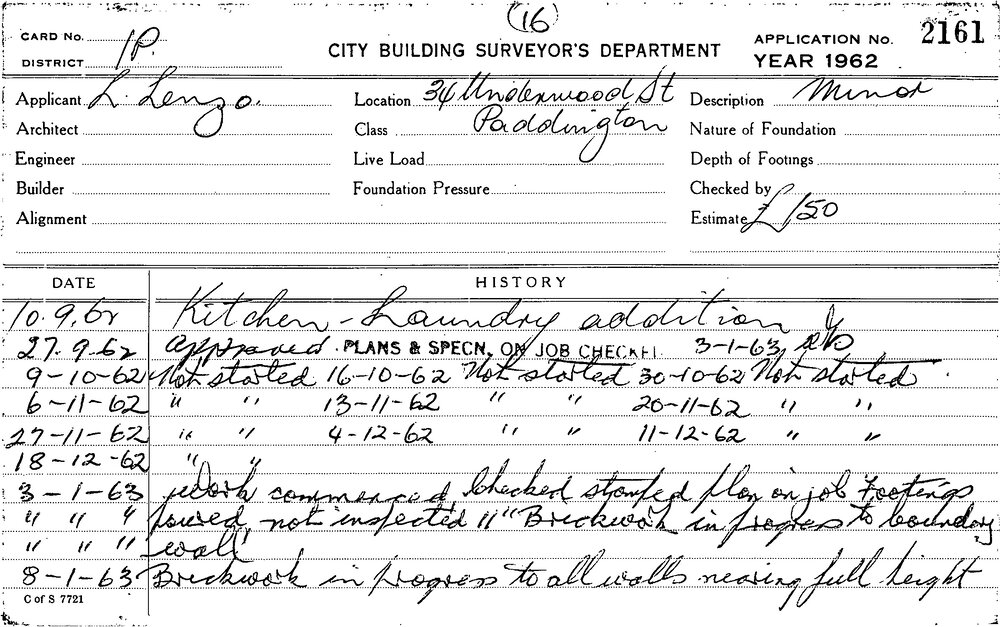 (16)
CARD No. 1P.
DISTRICT
CITY BUILDING SURVEYOR'S DEPARTMENT
APPLICATION No. 2161
YEAR 1962
Applicant L. Lenzo.
Location 34 Underwood St
Description Minor
Architect
Class Paddington
Nature of Foundation
Engineer
Live Load
Depth of Footings
Builder
Foundation Pressure
Checked by
Alignment
Estimate £150
DATE HISTORY
10.9.62 Kitchen - Laundry addition
27.9.62 Approved. PLANS & SPECN. ON JOB CHECKED 3-1-63
9-10-62 Not started 16-10-62 Not started 30-10-62 Not started
6-11-62 " " 13-11-62 " " 20-11-62 " "
27-11-62 " " 4-12-62 " " 11-12-62 " "
18-12-62 " "
3-1-63 Work commenced, Checked stamped plan on job Footings
" " " poured, not inspected " " Brickwork in progress to boundary
" " " wall
8-1-63 Brickwork in progress to all walls nearing full height
C of S 7721